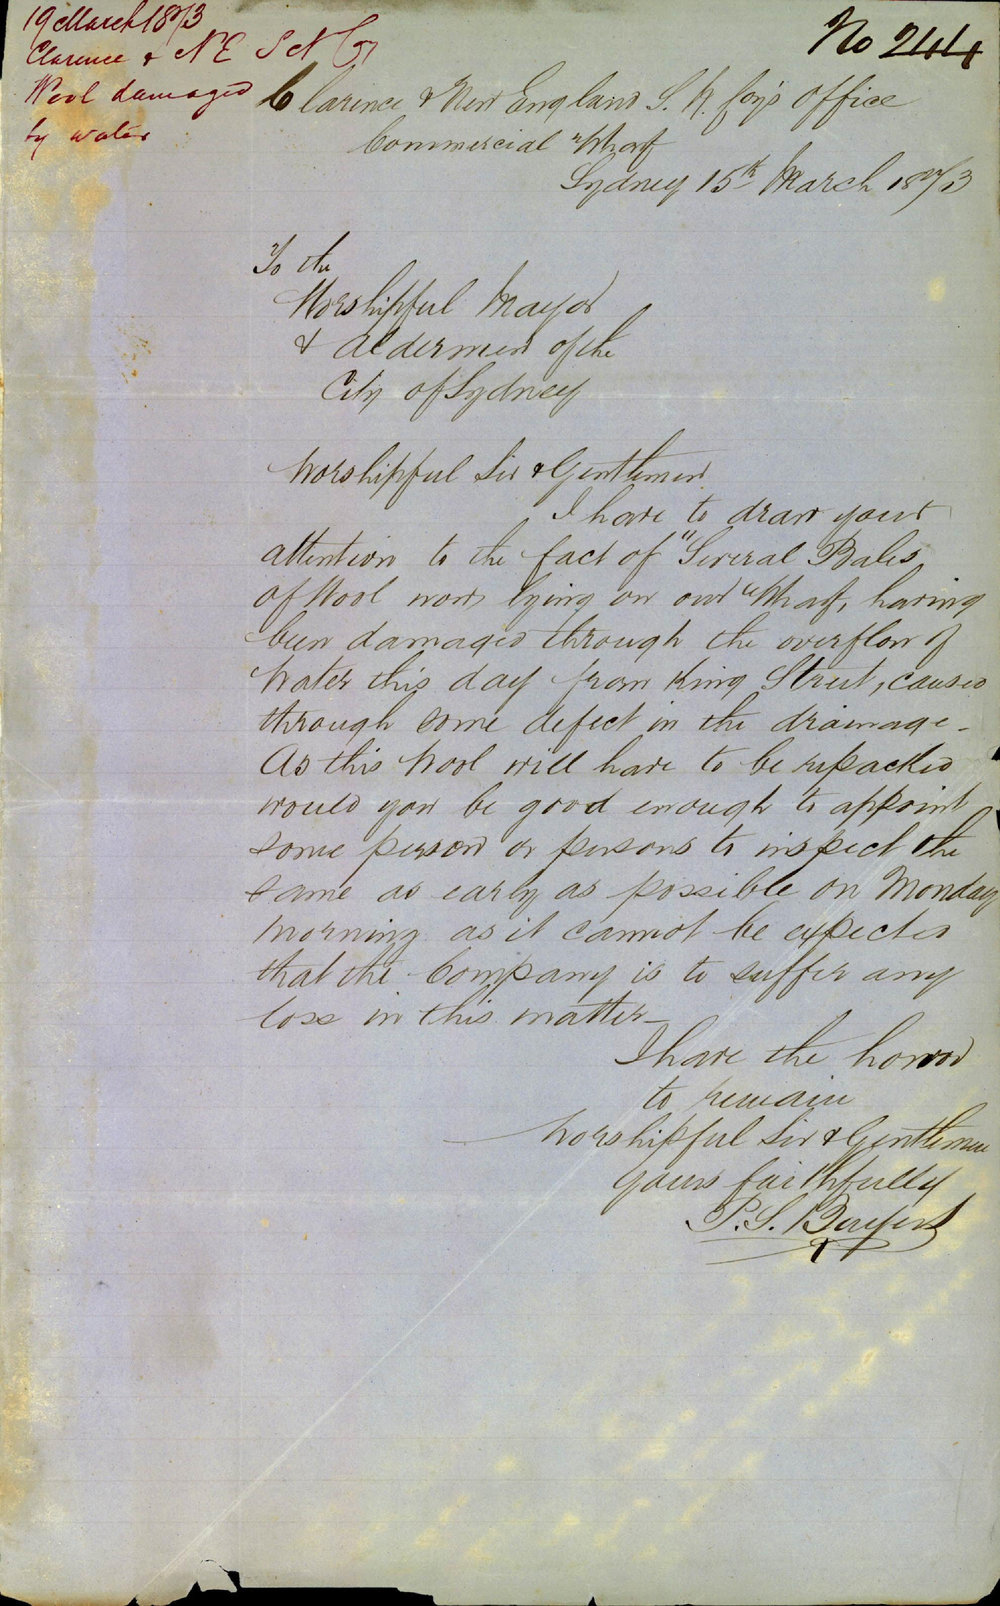 19 March 1873
Clarence & N E S N Co
Wool damaged
by water
No 244
Clarence & New England S. N. Coy's Office
Commercial Wharf
Sydney 15th March 1873
To the
Worshipful Mayor
& Aldermen of the
City of Sydney
Worshipful Sir & Gentlemen
I have to draw your
attention to the fact of "Several Bales
of Wool now lying on our Wharf, having
been damaged through the overflow of
Water this day from King Street, caused
through some defect in the drainage -
As this Wool will have to be repacked
would you be good enough to appoint
some person or persons to inspect the
same as early as possible on Monday
morning as it cannot be expected
that the Company is to suffer any
loss in this matter -
I have the honor
to remain
Worshipful Sir & Gentlemen
yours faithfully
P. S.